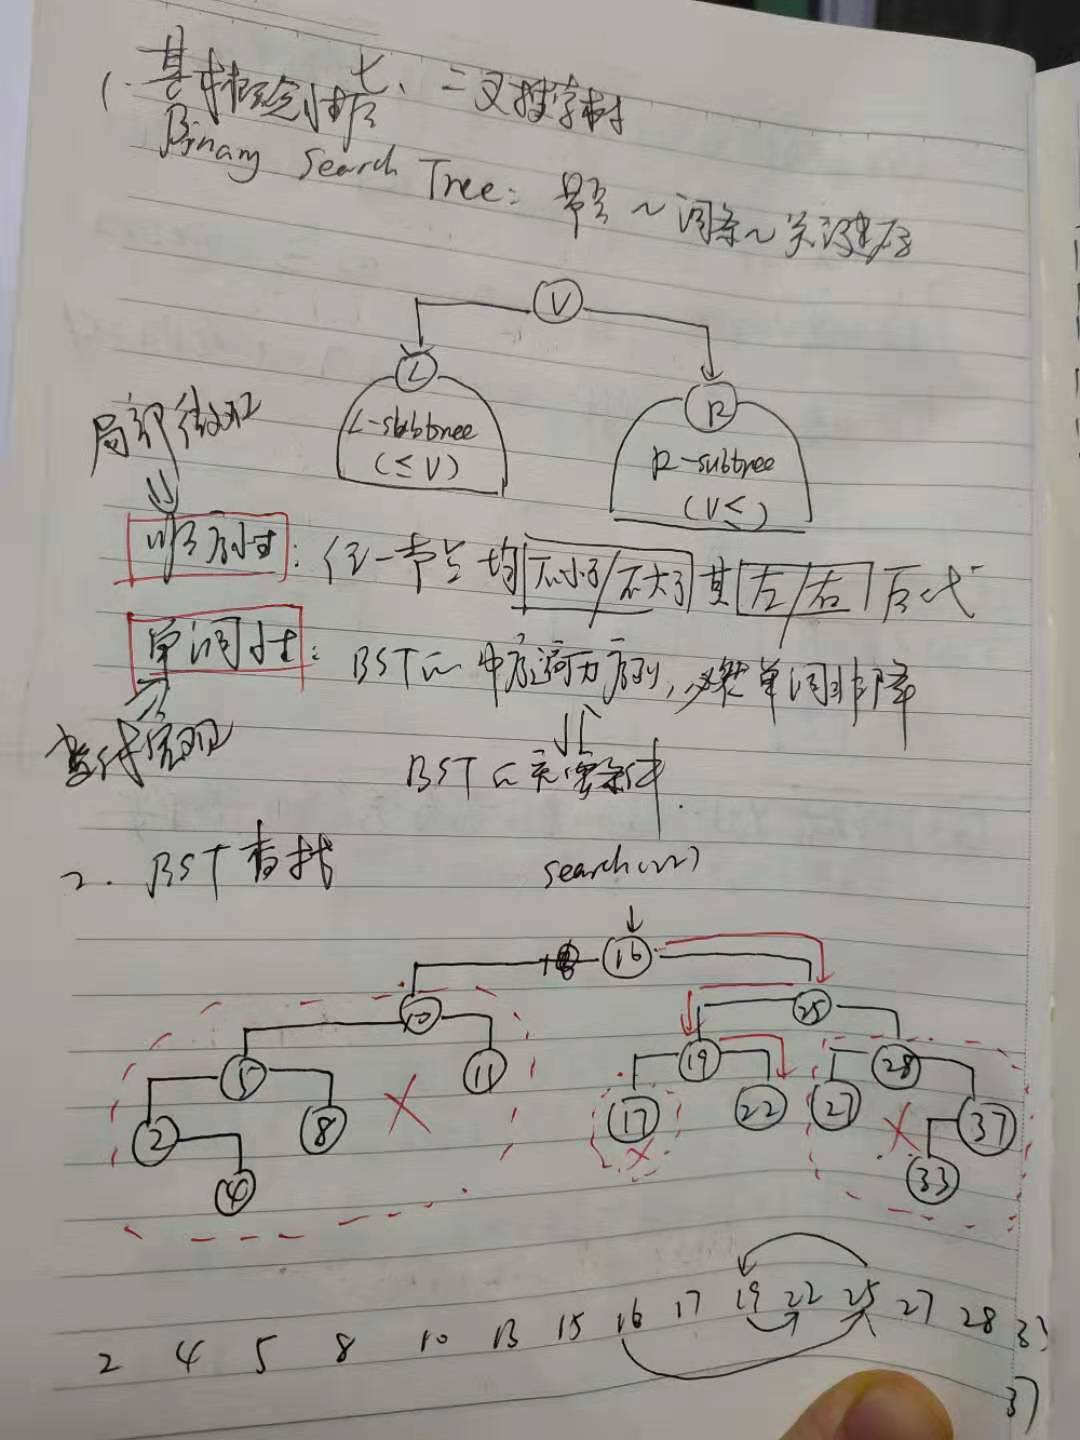 七、二叉搜索树
1. 基本概念性质
Binary Search Tree: 节点 ~ 词条 ~ 关键码
V
L
R
L-subtree
(≤ V)
R-subtree
(V≤)
局部微观
顺序性: 任一节点均不小于/不大于其左/右后代
单调性: BST的中序遍历序列,必然单调非降
整体宏观
BST的充要条件.
2. BST查找
search(22)
16
10 25
5 11 19 28
2 8 17 22 27 37
4 33
2 4 5 8 10 13 15 16 17 19 22 25 27 28 33
37